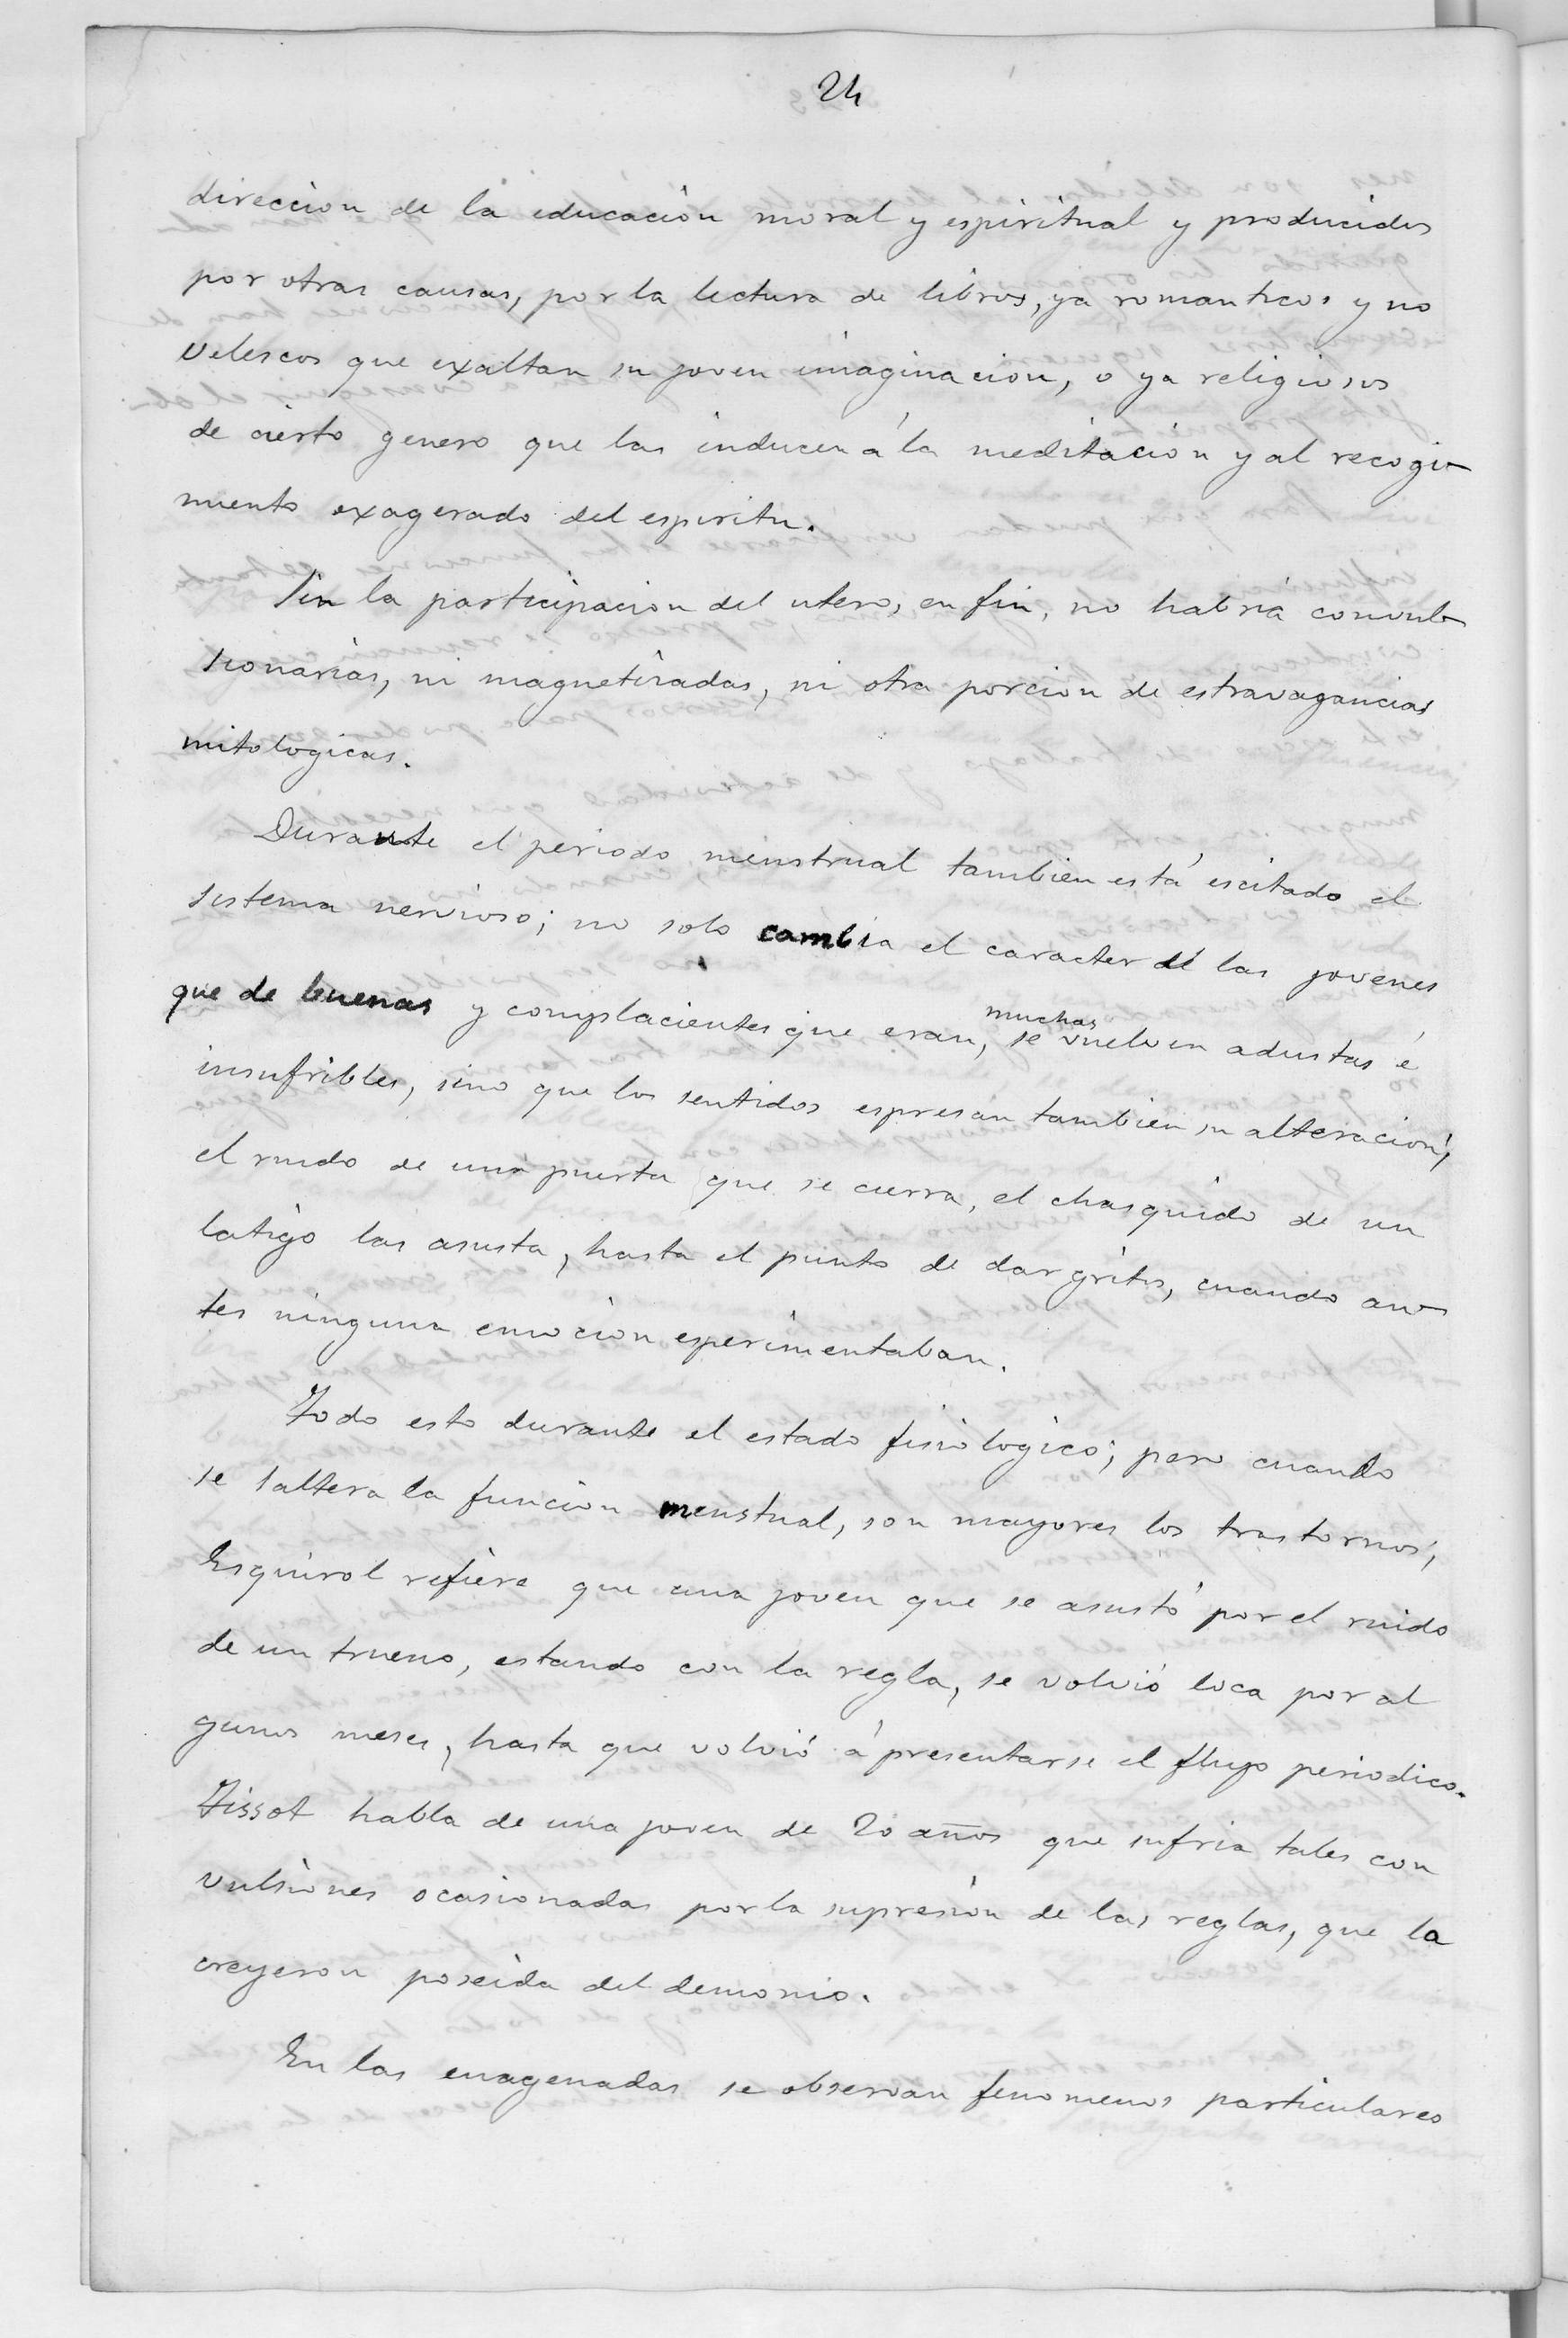 24
direccion de la educación moral y espiritual y producidos
por otras causas, por la lectura de libros, ya romanticos y no
velescos que exaltan su joven imaginacion, o ya religiosos
de cierto genero que las inducen á la meditación y al recogi-
miento exagerado del espiritu.
Sin la participacion del utero, en fin, no habria convul-
sionarias, ni magnetizadas, ni otra porcion de estravagancias
mitologicas.
Durante el periodo menstrual tambien está escitado el
sistema nervioso; no solo cambia el caracter de las jovenes
que de buenas y complacientes que eran, muchas se vuelven adustas é
insufribles, sino que los sentidos espresan tambien su alteracion,
el ruido de una puerta que se cierra, el chasquido de un
latigo las asusta, hasta el punto de dar gritos, cuando an-
tes ninguna emoción esperimentaban.
Todo esto durante el estado fisiologico; pero cuando
se altera la funcion menstual, son mayores los trastornos,
Esquirol refiere que una joven que se asustó por el ruido
de un trueno, estando con la regla, se volvió loca por al
gunos meses, hasta que volvió á presentarse el flujo periodico.
Tissot habla de una joven de 20 años que sufria tales con
vulsiones ocasionadas por la supresion de las reglas, que la
creyeron poseida del demonio.
En las enagenadas se observan fenomenos particulares